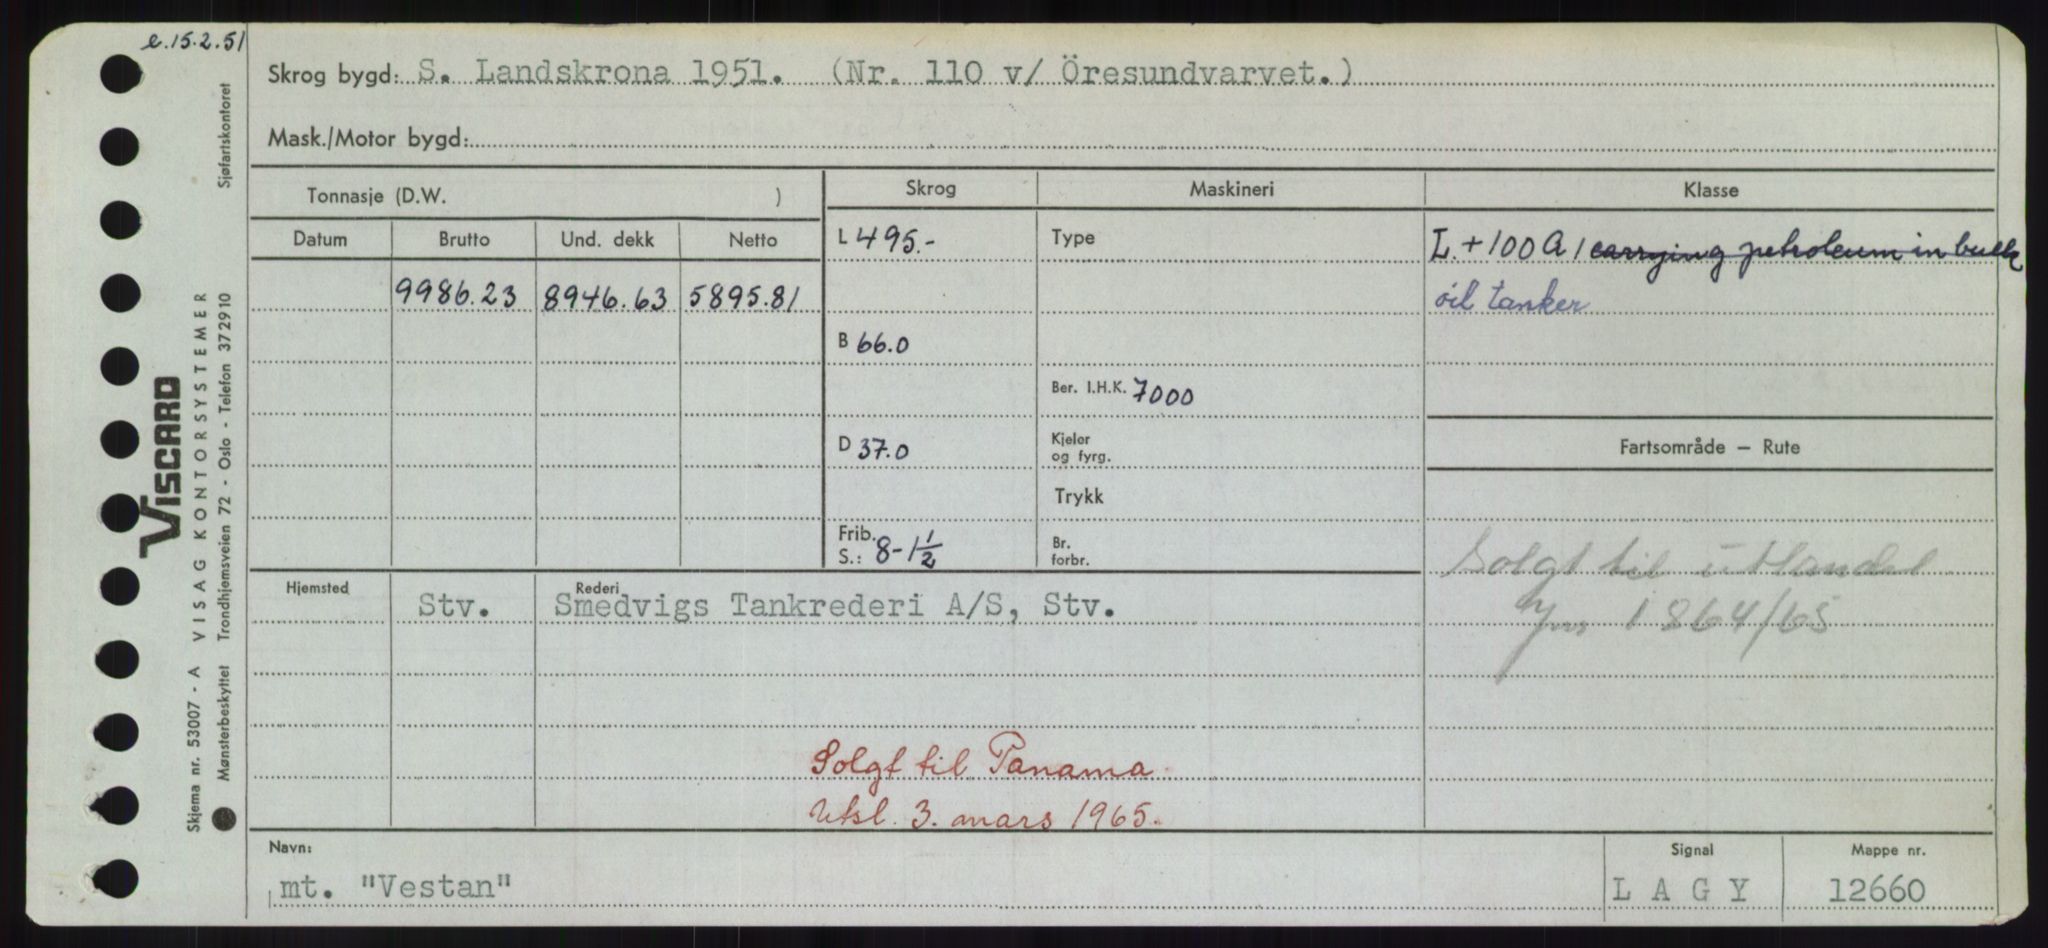 e.15.2.51
Skrog bygd: S. Landskrona 1951. (Nr. 110 v/ Öresundvarvet.)
Mask./Motor bygd:
Tonnasje (D.W. )
Skrog
Maskineri
Klasse
Datum
Brutto
Und. dekk
Netto
L 495.-
Type
L. +100 A 1 carrying petroleum in bulk
9986.23 8946.63 5895.81
oil tanker
B 66.0
Ber. I.H.K. 7000
D 37.0
Kjeler
og fyrg.
Fartsområde — Rute
Trykk
Frib.
S.: 8-1 1/2
Br.
forbr.
Solgt til utlandet
1964/65
Hjemsted
Rederi
Stv. Smedvigs Tankrederi A/S, Stv.
Solgt til Panama
Utsl. 3. mars 1965.
Navn:
mt. "Vestan"
Signal
L A G Y
Mappe nr.
12660
VISCARD
Skjema nr. 53007 - A VISAG KONTORSYSTEMER
Mønsterbeskyttet Trondhjemsveien 72 - Oslo - Telefon 372910 Sjøfartskontoret